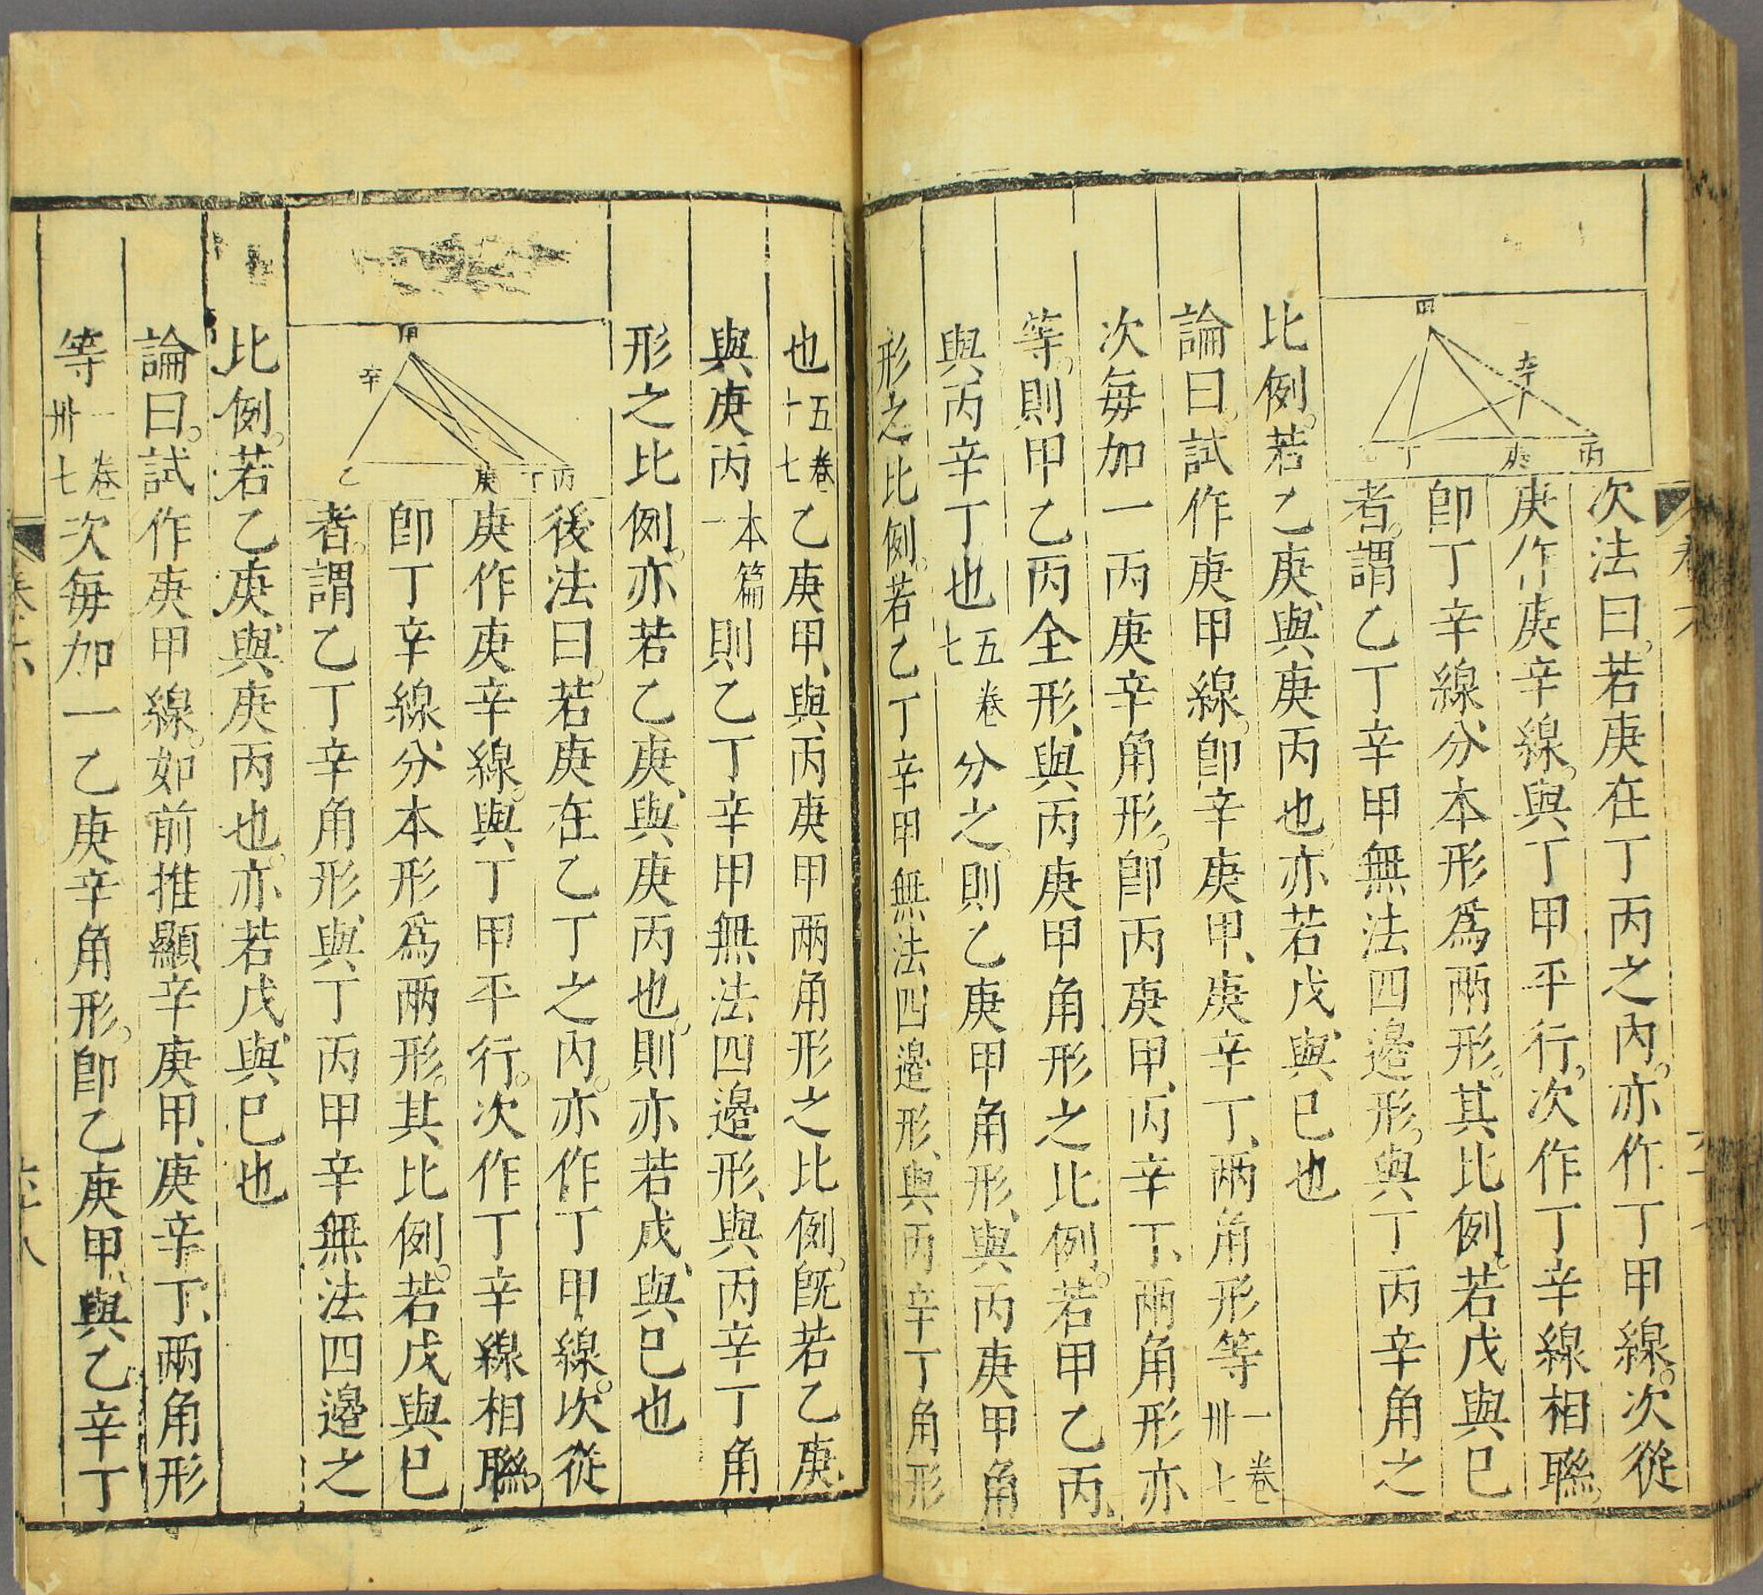 甲
辛
丁
庚
丙
次法曰。若庚在丁丙之內。亦作丁甲線。次從
庚作庚辛線。與丁甲平行。次作丁辛線相聯。
卽丁辛線分本形爲兩形。其比例。若戊與巳
者。謂乙丁辛甲無法四邊形。與丁丙辛角之
比例。若乙庚、與庚丙也。亦若戊、與巳也
論曰。試作庚甲線。卽辛庚甲、庚辛丁、兩角形等一卷卅七
次每加一丙庚辛角形。卽丙庚甲、丙辛丁、兩角形亦
等。則甲乙丙全形、與丙庚甲角形之比例。若甲乙丙、
與丙辛丁也五卷七分之。則乙庚甲角形、與丙庚甲角
形之比例。若乙丁辛甲無法四邊形、與丙辛丁角形
也五卷十七乙庚甲、與丙庚甲兩角形之比例。旣若乙庚、
與庚丙本篇一則乙丁辛甲無法四邊形、與丙辛丁角
形之比例。亦若乙庚、與庚丙也。則亦若戊、與巳也
甲
辛
乙
庚
丁
丙
後法曰。若庚在乙丁之內。亦作丁甲線。次從
庚作庚辛線。與丁甲平行。次作丁辛線相聯。
卽丁辛線分本形爲兩形。其比例。若戊與巳
者。謂乙丁辛角形、與丁丙甲辛無法四邊之
比例。若乙庚、與庚丙也。亦若戊、與巳也
論曰。試作庚甲線。如前推顯辛庚甲、庚辛丁、兩角形
等一卷卅七次每加一乙庚辛角形。卽乙庚甲、與乙辛丁
卷六